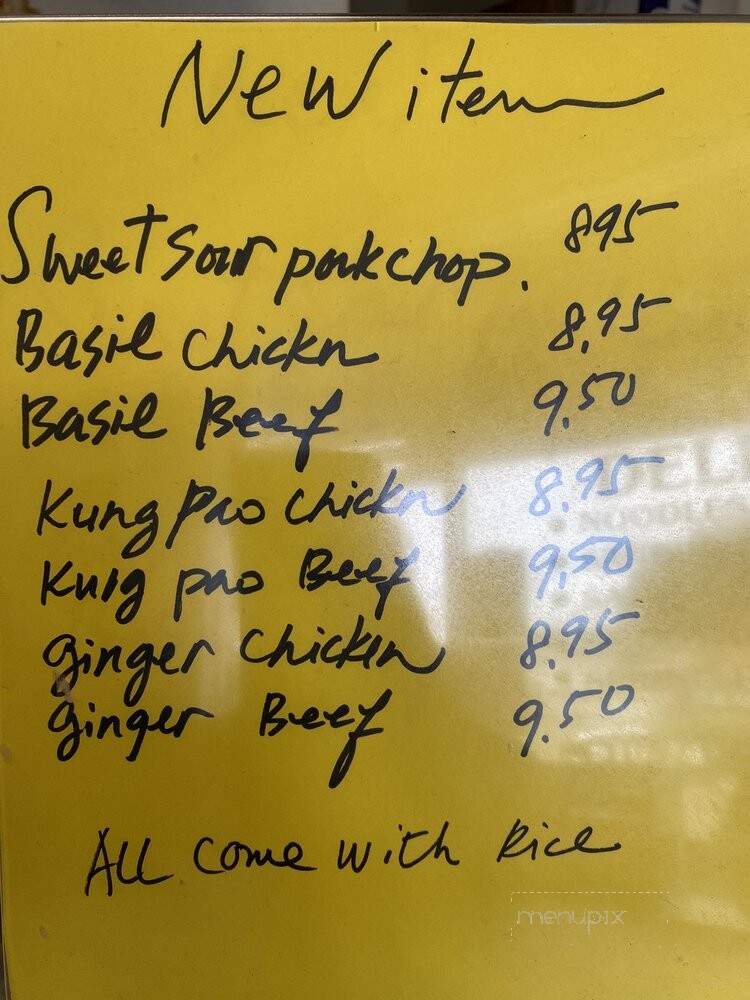 New item
Sweet sour porkchop. 895
Basil chickn 8.95
Basil Beef 9.50
Kung pao chickn 8.95
Kung pao Beef 9.50
ginger chicken 8.95
ginger Beef 9.50
ALL come with Rice
menupix